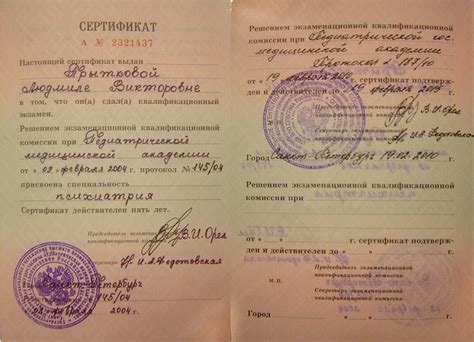 СЕРТИФИКАТ
А № 2321437
Настоящий сертификат выдан
Прытковой
Людмиле Викторовне
в том, что он(а) сдал(а) квалификационный
экзамен.
Решением экзаменационной квалификационной
комиссии при Педиатрической
медицинской академии
от «09» февраля 2004 г. протокол № 145/04
присвоена специальность
психиатрия
Сертификат действителен пять лет.
Председатель экзаменационной
квалификационной комиссии
В.И. Орел
И.А. Федотовская
Санкт-Петербург
145/04
февраля 2004 г.
Решением экзаменационной квалификационной
комиссии при Педиатрической гос.
медицинской академии
Протокол № 187/10
от «19 февраля 2010» сертификат подтвержден
и действителен до «19 февраля 2015»
В.И. Орел
И.А. Федотовская
Город Санкт-Петербург 19.02.2010
Решением экзаменационной квалификационной
комиссии при
от « » сертификат подтвержден
и действителен до « »
Председатель экзаменационной
квалификационной комиссии
М.П.
Секретарь экзаменационной
квалификационной комиссии
Город